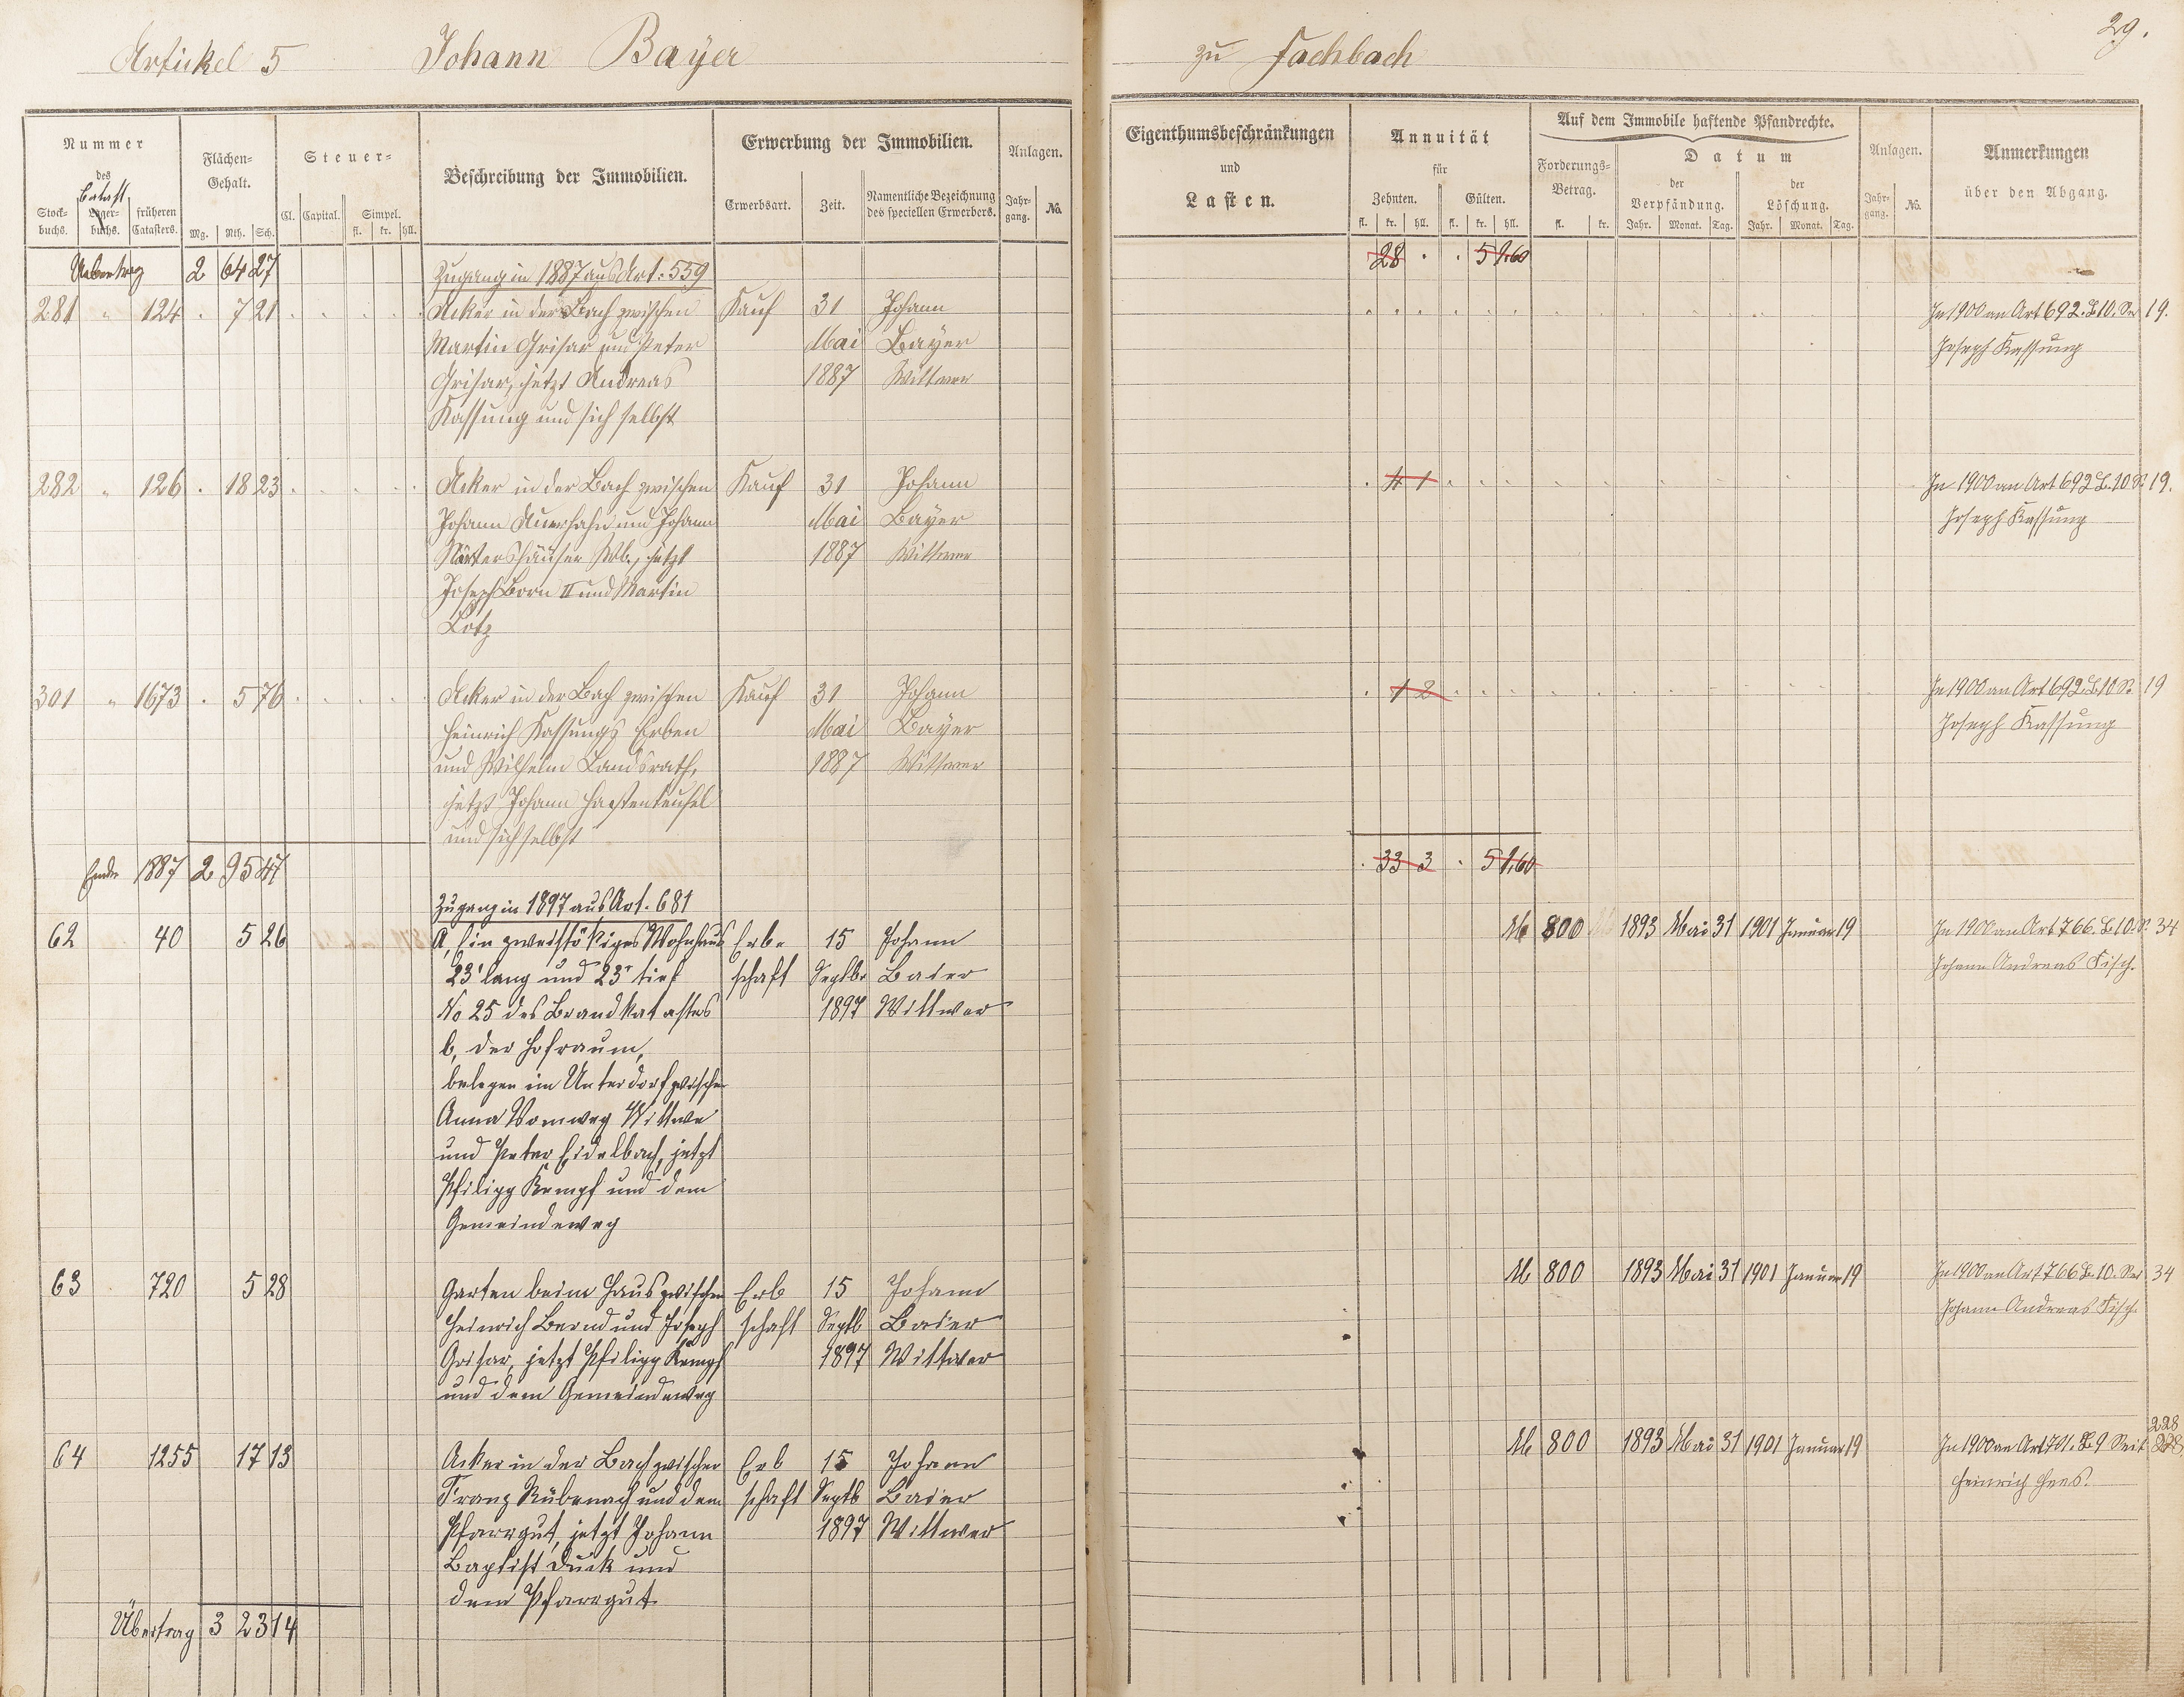 Artikel 5 Johann Bayer
zu Fachbach
29.
Nummer
des
Stock-
buchs.
Lager-
buchs.
früheren
Catasters.
Flächen-
Gehalt.
Mg. Rth. Sch.
Steuer-
Cl. Capital. Simpel.
fl. kr. hll.
Beschreibung der Immobilien.
Erwerbung der Immobilien.
Erwerbsart. Zeit. Namentliche Bezeichnung
des speciellen Erwerbers.
Anlagen.
Jahr-
gang. No.
Eigenthumsbeschränkungen
und
Lasten.
Annuität
für
Zehnten. Gülten.
fl. kr. hll. fl. kr. hll.
Auf dem Immobile haftende Pfandrechte.
Forderungs-
Betrag.
fl. kr.
Datum
der
Verpfändung.
Jahr. Monat. Tag.
der
Löschung.
Jahr. Monat. Tag.
Anlagen.
Jahr-
gang. No.
Anmerkungen
über den Abgang.
Uebertrag 2 64 27 Zugang in 1887 aus Art. 559 28 . . 5 1.60
281 " 124 . 7 21 Acker in der Bach zwischen Kauf 31 Johann In 1900 an Art 692. B 10. 19.
Martin Grisar und Peter Mai Bayer Joseph Kassung
Grisar, jetzt Andreas 1887 Wittwer
Kassung und sich selbst
282 " 126 . 18 23 Acker in der Bach zwischen Kauf 31 Johann 4 1 In 1900 an Art 692 B. 10 S. 19.
Johann Auerhahn und Johann Mai Bayer Joseph Kassung
Wb., jetzt 1887 Wittwer
Joseph Born II und Martin
Lotz
301 " 1673 . 5 76 Acker in der Bach zwischen Kauf 31 Johann 1 2 In 1900 an Art 692. B 10 S. 19
Heinrich Kassungs Erben Mai Bayer Joseph Kassung
und Wilhelm Landsrath, 1887 Wittwer
jetzt Johann Hastenteufel
und sich selbst
Ende 1887 2 95 47 . 33 3 . 5 1.60
Zugang in 1897 aus Art. 681
62 40 5 26 A, Ein zweistökiges Wohnhaus Erb- 15 Johann M 800 1893 Mai 31 1901 Januar 19 In 1900 an Art 766. B 10. S. 34
23' lang und 23' tief schaft Septbr Baier Johann Andreas Fisch.
No 25 des Brandkatasters 1897 Wittwer
b, der Hofraum,
belegen im Unterdorf zwischen
Anna Vomweg Wittwe
und Peter Eidelbach, jetzt
Philipp Kempf und dem
Gemeindeweg
63 720 5 28 Garten beim Haus zwischen Erb 15 Johann M 800 1893 Mai 31 1901 Januar 19 In 1900 an Art 766 B. 10. 34
Heinrich Bernd und Joseph schaft Septb Baier Johann Andreas Fisch.
Grisar, jetzt Philipp Kempf 1897 Wittwer
und dem Gemeindeweg
228
64 1255 17 13 Acker in der Bach zwischen Erb 15 Johann M 800 1893 Mai 31 1901 Januar 19 In 1900 an Art 701. B 9 Seit 228
Franz Rübenach und dem schaft Septb Baier Heinrich Hees.
Pfarrgut, jetzt Johann 1897 Wittwer
Baptist Duck und
dem Pfarrgut
Übertrag 3 23 14